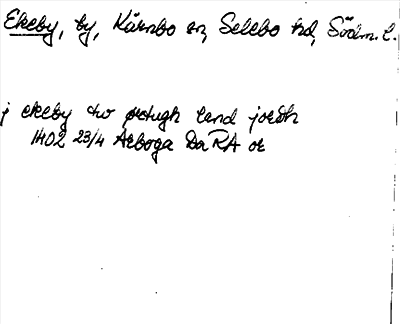 Ekeby, by, Kärnbo sn, Selebo hd, Södm. l.
j ekeby two ørtugh land jordh
1402 23/4 Arboga Da RA or